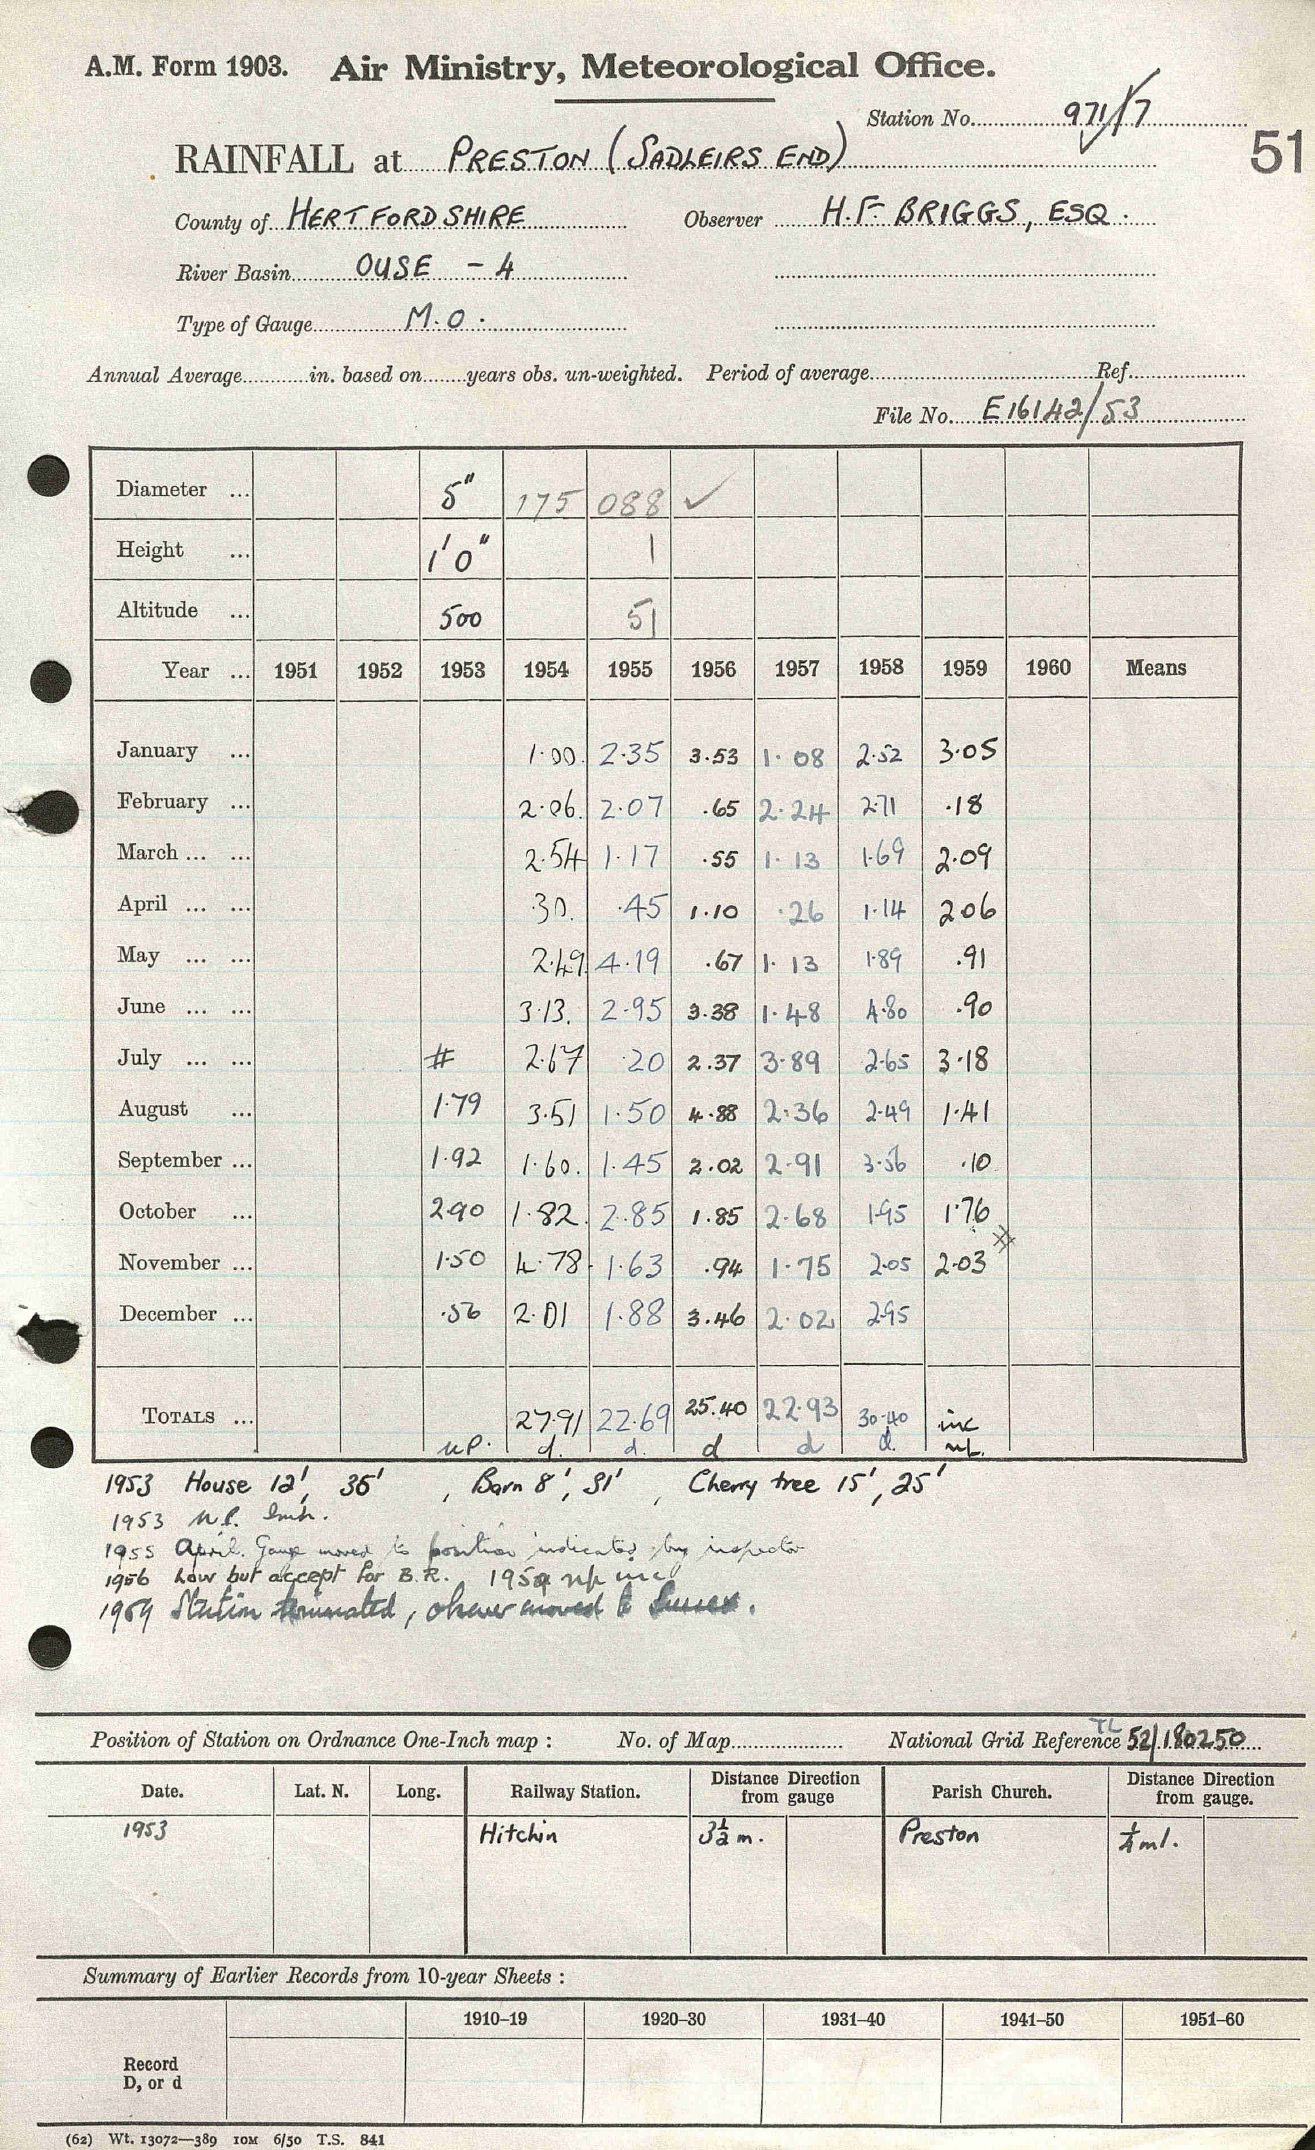 A.M. Form 1903. Air Ministry, Meteorological Office.
Station No. 971/7
51
RAINFALL at PRESTON (SADLEIRS END)
County of HERTFORDSHIRE Observer H.F. BRIGGS, ESQ.
River Basin OUSE - 4
Type of Gauge M.O.
Annual Average in. based on years obs. un-weighted. Period of average Ref.
File No. E16142/53
Diameter ... 5" 175 088 ✓
Height ... 1'0" 1
Altitude ... 500 51
Year ... 1951 1952 1953 1954 1955 1956 1957 1958 1959 1960 Means
January ... 1.00 2.35 3.53 1.08 2.52 3.05
February ... 2.06 2.07 .65 2.24 2.71 .18
March ... ... 2.54 1.17 .55 1.13 1.69 2.09
April ... ... .30 .45 1.10 .26 1.14 2.06
May ... ... 2.49 4.19 .67 1.13 1.89 .91
June ... ... 3.13 2.95 3.38 1.48 4.80 .90
July ... ... # 2.67 .20 2.37 3.89 2.65 3.18
August ... 1.79 3.51 1.50 4.88 2.36 2.49 1.41
September ... 1.92 1.60 1.45 2.02 2.91 3.56 .10
October ... 2.90 1.82 2.85 1.85 2.68 1.95 1.76
November ... 1.50 4.78 1.63 .94 1.75 2.05 2.03
December ... .56 2.01 1.88 3.46 2.02 2.95
TOTALS ... 27.91 22.69 25.40 22.93 30.40 inc
n.p. d. d. d d d. n.p.
1953 House 12', 36', Barn 8', 31', Cherry tree 15', 25'
1953 n.p. Inch.
1955 April. Gauge moved to position indicated by inspector
1956 Low but accept for B.R. 1959 np inc
1959 Station terminated, observer moved to Sussex.
Position of Station on Ordnance One-Inch map : No. of Map National Grid Reference TL 52/180250
Date. Lat. N. Long. Railway Station. Distance from gauge Direction Parish Church. Distance from gauge. Direction
1953 Hitchin 3½ m. Preston ¼ ml.
Summary of Earlier Records from 10-year Sheets :
1910–19 1920–30 1931–40 1941–50 1951–60
Record
D, or d
(62) Wt. 13072—389 10M 6/50 T.S. 841